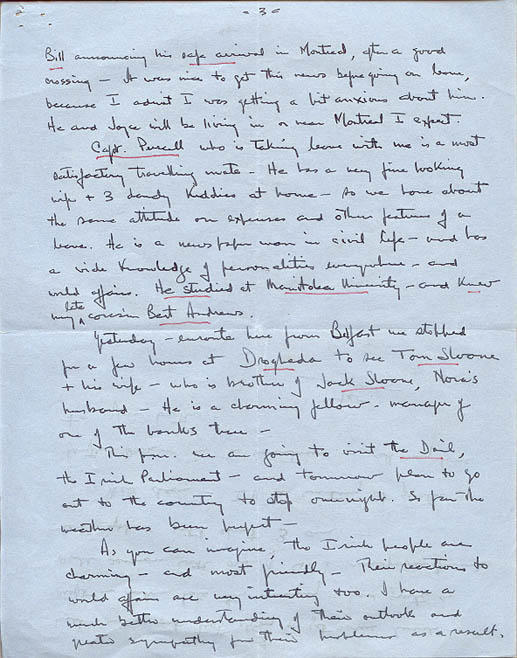 - 3 -
Bill announcing his safe arrival in Montreal, after a good
crossing - It was nice to get this news before going on leave,
because I admit I was getting a bit anxious about him.
He and Joyce will be living in or near Montreal I expect.
Capt. Purcell who is taking leave with me is a most
satisfactory travelling mate - He has a very fine looking
wife + 3 dandy kiddies at home - so we have about
the same attitude on expenses and other features of a
leave. He is a newspaper man in civil life - and has
a wide knowledge of personalities everywhere - and
world affairs. He studied at Manitoba University - and knew
my late cousin Bert Andrews.
Yesterday - enroute here from Belfast we stopped
for a few hours at Drogheda to see Tom Sloane
+ his wife - who is brother of Jack Sloane, Nora's
husband - He is a charming fellow - manager of
one of the banks there -
This p.m. we are going to visit the Dail,
the Irish Parliament - and tomorrow plan to go
out to the country to stop overnight. So far the
weather has been perfect -
As you can imagine, the Irish people are
charming - and most friendly - Their reactions to
world affairs are very interesting too. I have a
much better understanding of their outlook and
greater sympathy for their problems as a result.